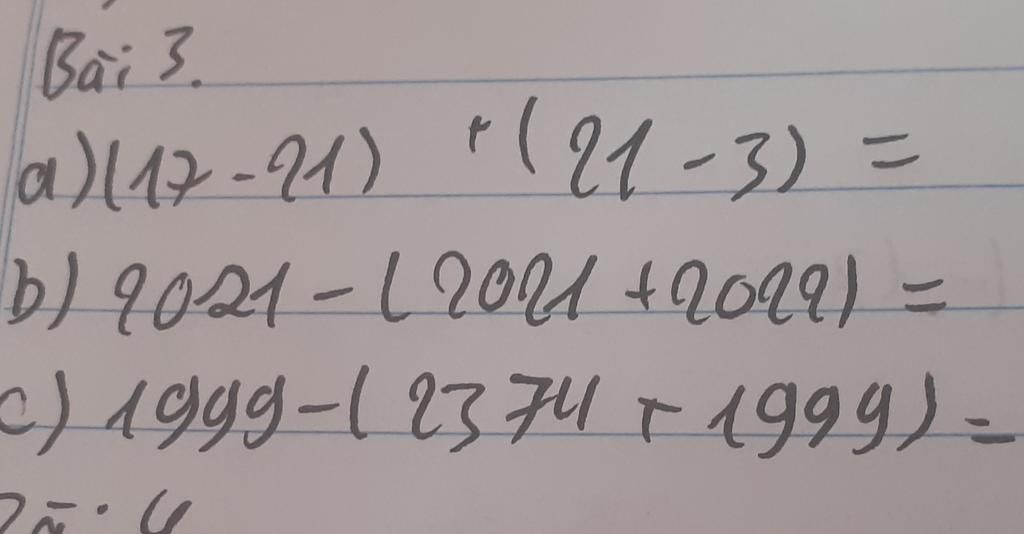 Bài 3.
a) (17 - 21) + (21 - 3) =
b) 2021 - (2021 + 2022) =
c) 1999 - (2374 + 1999) =